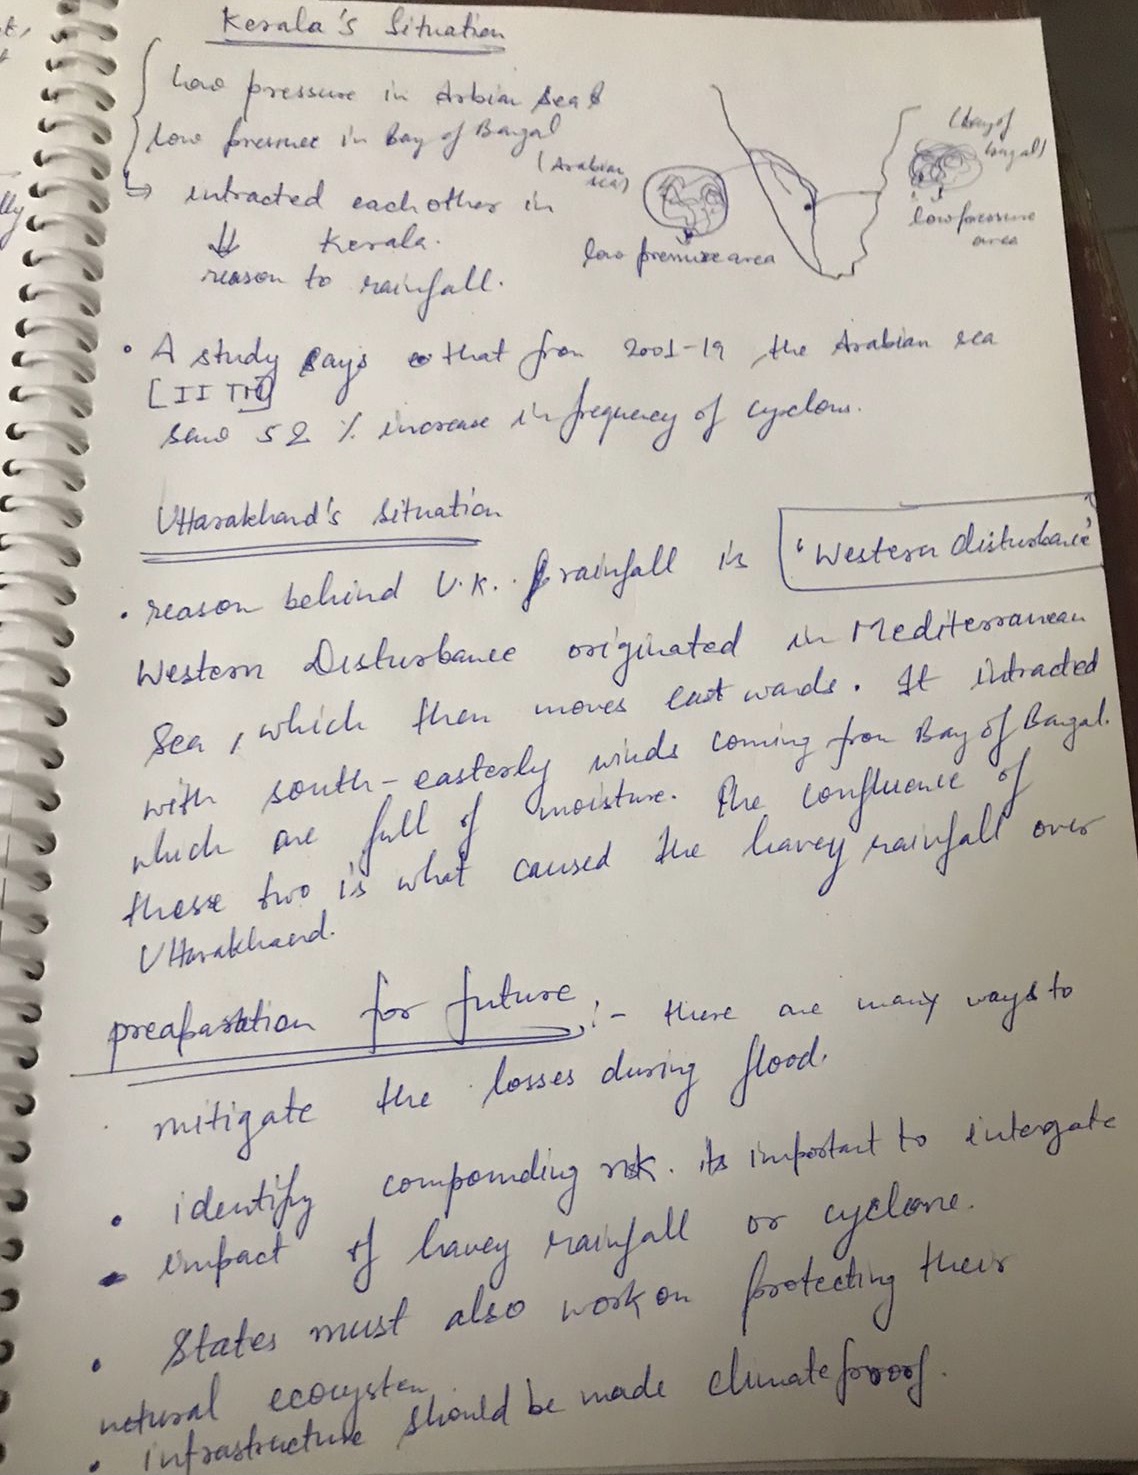 Kerala's Situation
low pressure in Arbian sea &
low pressure in Bay of Bangal
↳ intracted each other in
⇓ Kerala.
reason to rainfall.
(Arabian
sea)
low pressure area
(bay of
bangal)
low pressure
area
• A study says that from 2001-19 the Arabian sea
[IITM]
saw 52 % increase in frequency of cyclons.
Uttarakhand's situation
• reason behind U.K. rainfall is 'Western disturbance'
Western Disturbance originated in Mediterranean
Sea, which then moves east wards. It intracted
with south-easterly winds coming from Bay of Bangal.
which are full of moisture. The confluence of
these two is what caused the havey rainfall over
Uttarakhand.
preaparation for future :- there are many ways to
mitigate the losses during flood.
• identify compounding risk. its important to intergate
• impact of havey rainfall or cyclone.
• States must also work on protecting their
natural ecosystem.
• infrastructure should be made climate proof.